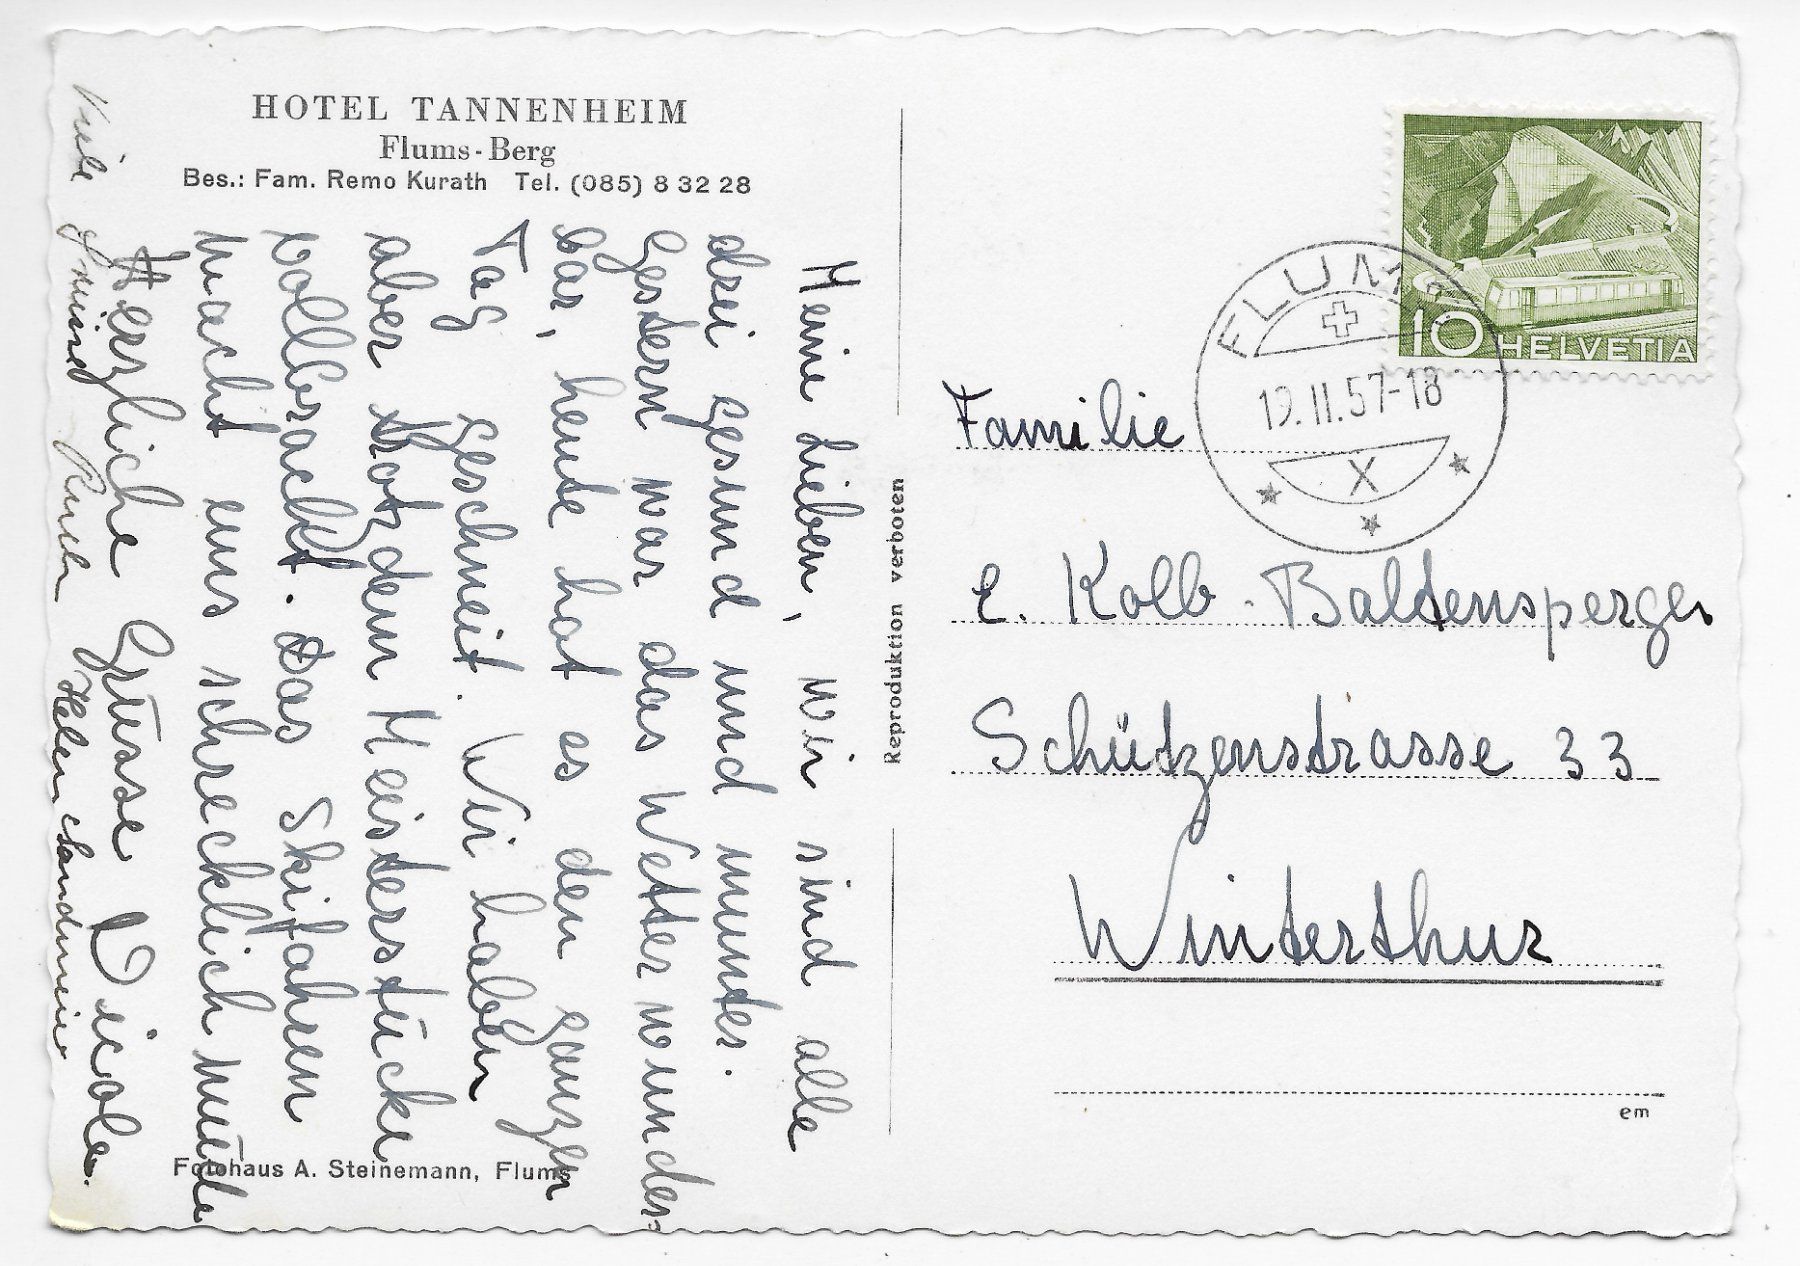 HOTEL TANNENHEIM
Flums-Berg
Bes.: Fam. Remo Kurath Tel. (085) 8 32 28
Meine Lieben, wir sind alle
drei gesund und munter.
Gestern war das Wetter wunder-
bar, heute hat es den ganzen
Tag geschneit. Wir haben
aber trotzdem Meisterstücke
vollbracht. Das Skifahren
macht uns schrecklich müde
Herzliche Grüsse Nicole.
Viele Grüsse Helen
Reproduktion verboten
Fotohaus A. Steinemann, Flums
10 HELVETIA
FLUMS
19.II.57-18
X
Familie
E. Kolb-Baldensperger
Schützenstrasse 33
Winterthur
em